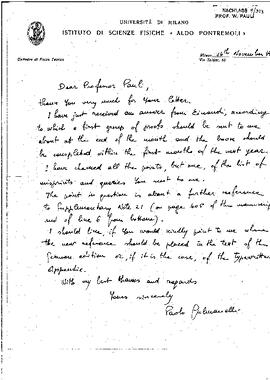 NACHLASS
PROF. W. PAULI
UNIVERSITÀ DI MILANO
ISTITUTO DI SCIENZE FISICHE «ALDO PONTREMOLI»
Cattedra di Fisica Teorica
Milano, 16th November
Via Saldini, 50
Dear Professor Pauli,
thank you very much for your letter.
I have just received an answer from Einaudi, according
to which a first group of proofs should be sent to me
about at the end of the month and the book should
be completed within the first months of the next year.
I have checked all the points, but one, of the list of
misprints and queries you sent to me.
The point in question is about a further reference
to Supplementary Note 21 (on page 605 of the manuscript
and of line 6 from bottom).
I should like, if you would kindly point to me where
the new reference should be placed in the text of the
German edition or, if it is the case, of the typewritten
Appendix.
With my best thanks and regards
Yours sincerely
Paolo Gulmanelli